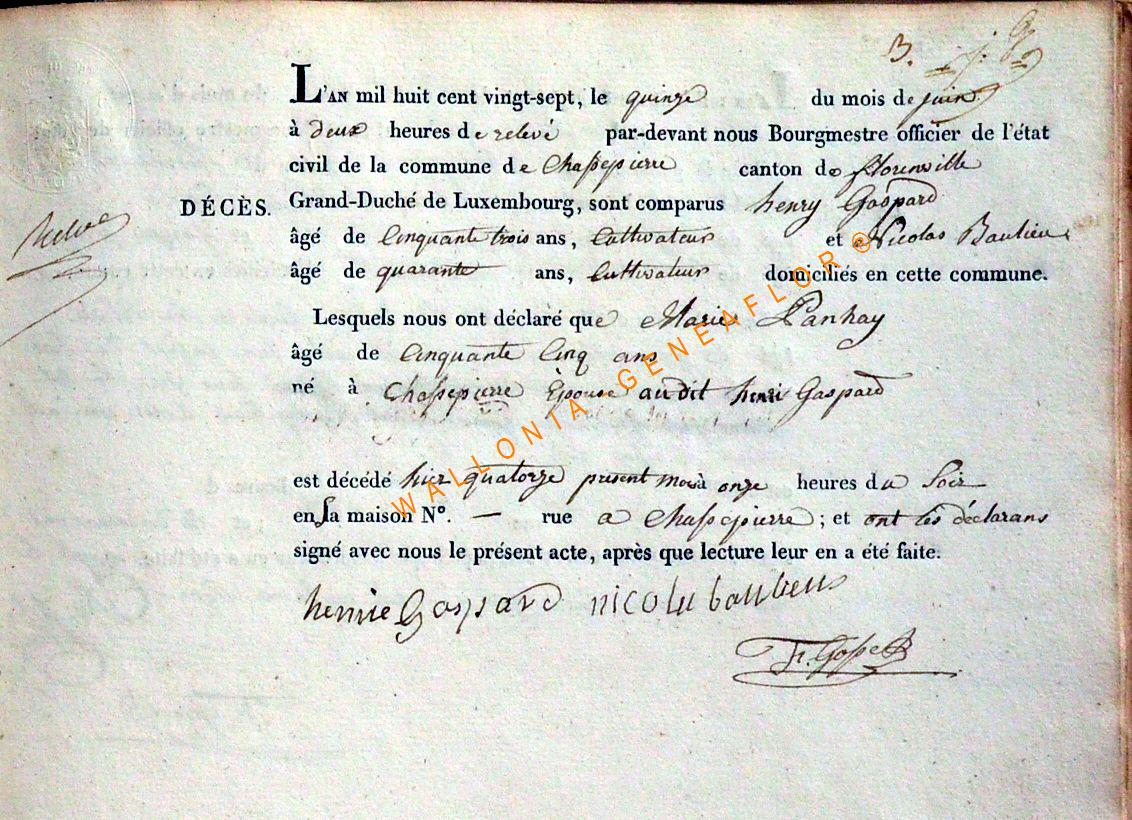 B.
L'AN mil huit cent vingt-sept, le quinze du mois de juin
à deux heures de relevé par-devant nous Bourgmestre officier de l'état
civil de la commune de Chassepierre canton de florenville
DÉCÈS. Grand-Duché de Luxembourg, sont comparus henry Gaspard
âgé de Cinquante trois ans, Cultivateur et Nicolas Baulieu
âgé de quarante ans, Cultivateur domiciliés en cette commune.
Lesquels nous ont déclaré que Marie Panhay
âgé de Cinquante Cinq ans
né à Chassepierre Épouse audit henri Gaspard
est décédé hier quatorze présent mois à onze heures du Soir
en Sa maison N°. — rue a Chassepierre; et ont les déclarans
signé avec nous le présent acte, après que lecture leur en a été faite.
henrie Gaspard nicola baulieus
WALLONIA-GENEAFLOR©